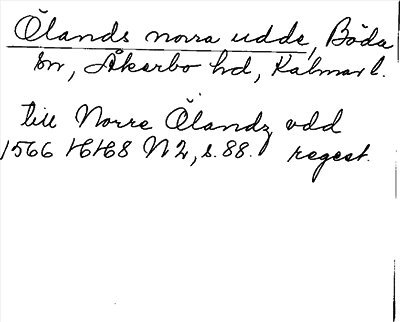 Ölands norra udde, Böda
sn, Åkerbo hd, Kalmar l.
till Norre Ölandz udd
1566 HH8 N2, s. 88. regest.